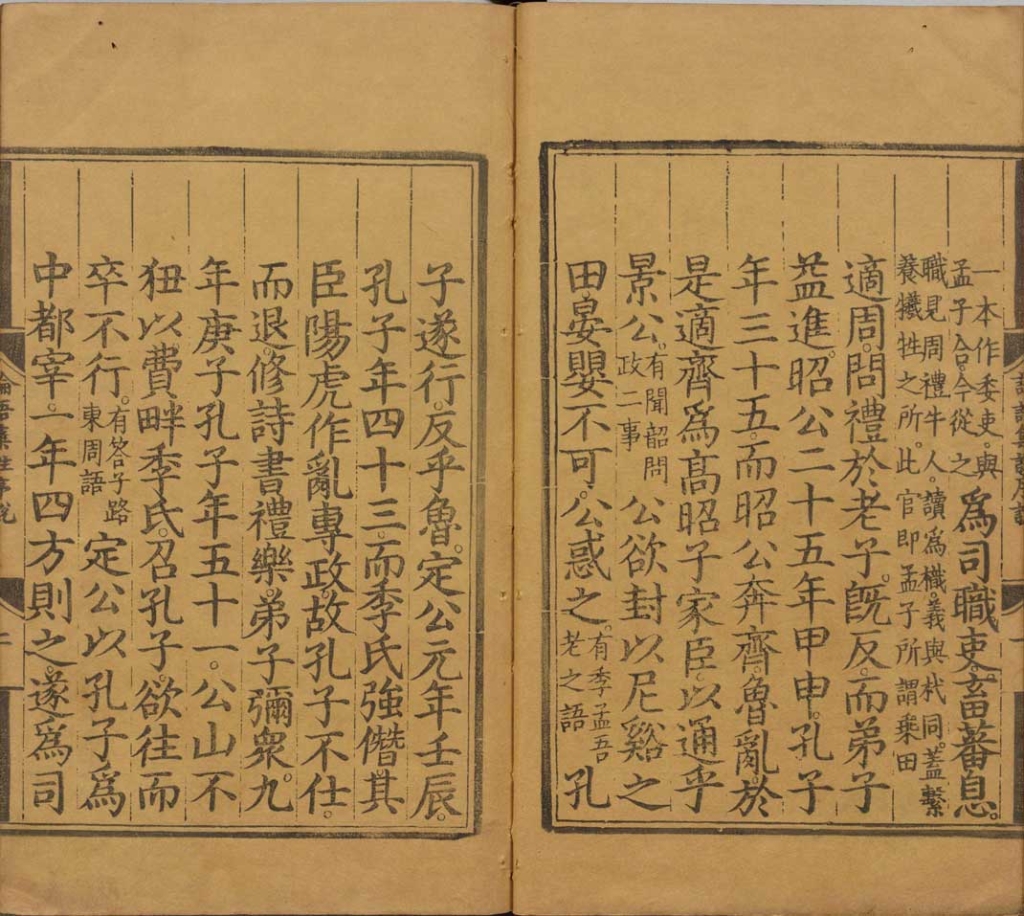 一本作委吏。與
孟子合。今從之
爲司職吏。畜蕃息。
職見周禮牛人。讀爲樴。義與杙同。蓋繫
養犧牲之所。此官即孟子所謂乘田
適周。問禮於老子。旣反。而弟子
益進。昭公二十五年甲申。孔子
年三十五。而昭公奔齊。魯亂。於
是適齊。爲高昭子家臣。以通乎
景公。有聞韶問政二事公欲封以尼谿之
田。晏嬰不可。公惑之。有季孟吾老之語孔
子遂行。反乎魯。定公元年壬辰。
孔子年四十三。而季氏強僭。其
臣陽虎作亂專政。故孔子不仕。
而退。修詩書禮樂。弟子彌衆。九
年庚子。孔子年五十一。公山不
狃以費畔季氏。召孔子。欲往。而
卒不行。有答子路東周語定公以孔子爲
中都宰。一年四方則之。遂爲司